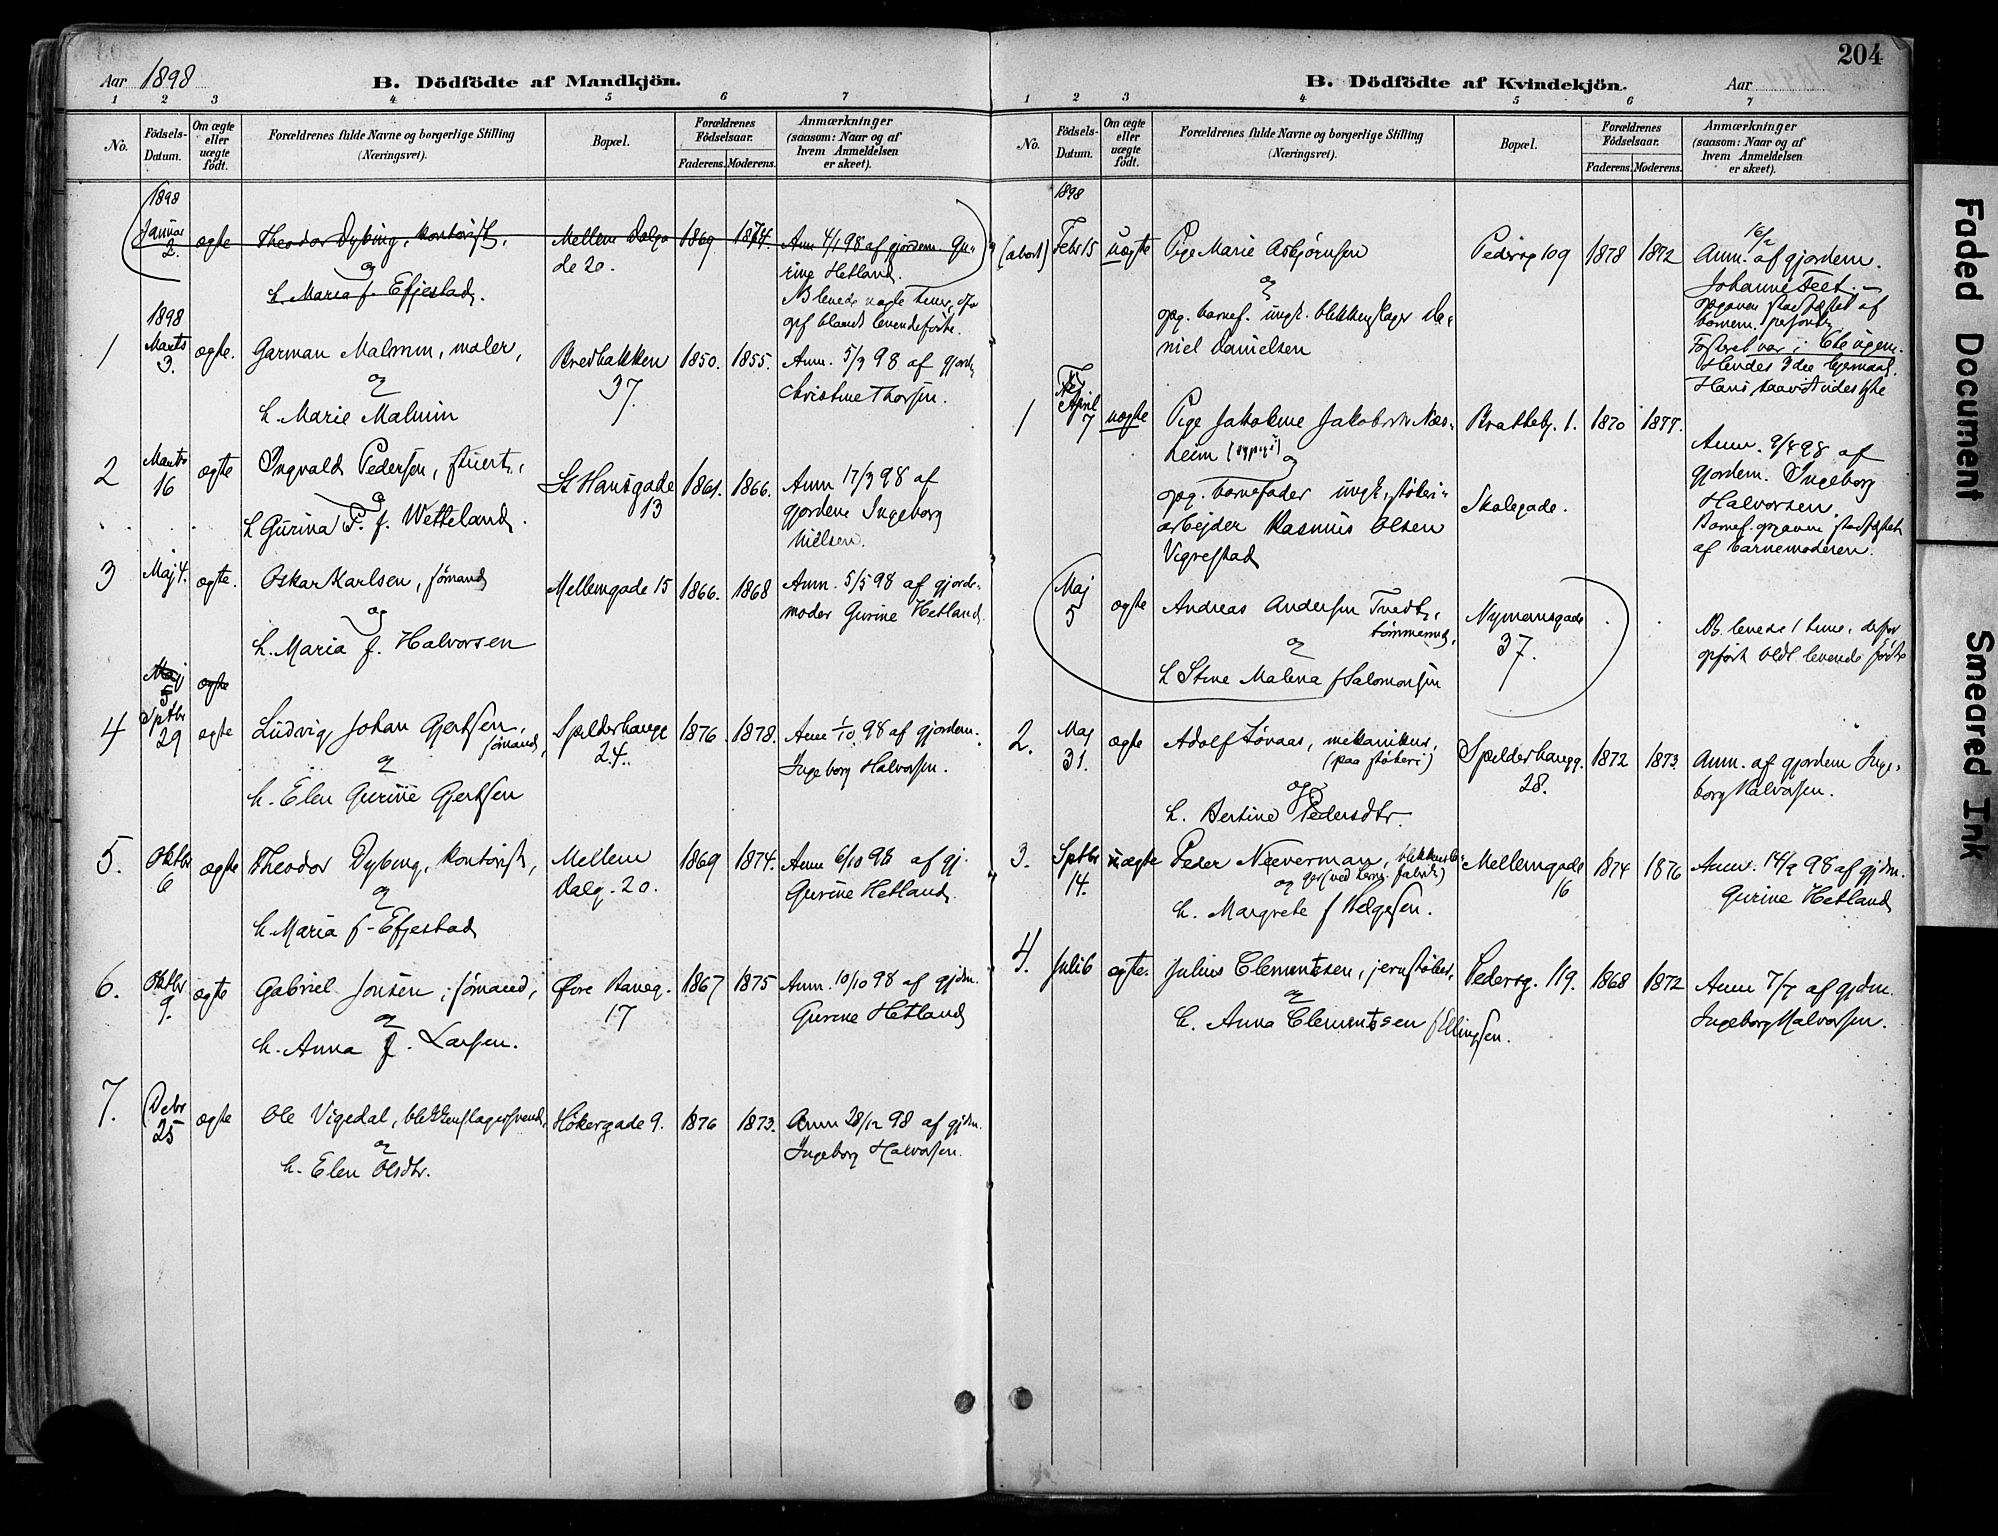 204
Aar 1898
B. Dödfödte af Mandkjön.
1 2 3 4 5 6 7
No.
Födsels-Datum.
Om ægte eller uægte födt.
Forældrenes fulde Navne og borgerlige Stilling
(Næringsvei).
Bopæl.
Forældrenes Födselsaar.
Faderens. Moderens.
Anmærkninger
(saasom: Naar og af
hvem Anmeldelsen
er skeet).
1898
Januar 2. ægte Theodor Dybing, kontorist, Mellem Dalga 1869 1874. Anm 4/1 98 af gjordem. Gu-
og de 20. rine Hetland.
h. Maria f. Efjestad. NB levede nogle timer,
opf blandt levendefødte.
1898
1 Marts 3. ægte. Garman Malmin, maler, Bredbakken 1850. 1855. Anm. 5/3 98 af gjord.
og 37. Christine Thorsen.
h. Marie Malmin
2 Marts 16 ægte Ingvald Pedersen, stuert, St Hansgade 1861. 1866. Anm 17/3 98 af
og 13 gjordem Ingeborg
h Gurina P. f. Wetteland. Nielsen.
3 Maj 4. ægte. Oskar Karlsen, sømand Mellemgade 15 1866. 1868 Anm. 5/5 98 af gjorde-
og moder Gurine Hetland
h. Maria f. Halvorsen
Maj 5 ægte
4 Sptbr 29 ægte Ludvig Johan Gjertsen, Spilderhauge 1876. 1878. Anm 1/10 98 af gjordem.
sømand, 24. Ingeborg Halvorsen.
og
h. Elen Gurine Gjertsen
5. Oktbr 6 ægte Theodor Dybing, kontorist, Mellem 1869 1874. Anm 6/10 98 af gj.
og Dalg. 20. Gurine Hetland.
h. Maria f. Efjestad
6. Oktbr 9. ægte Gabriel Jonsen, sømand, Øvre Baneg. 1867 1875 Anm. 10/10 98 af gjdm.
og 17 Gurine Hetland
h. Anna f. Larsen.
7. Debr 25 ægte Ole Vigedal, blekkenslagersvend, Høkergade 9. 1876 1873. Anm 28/12 98 af gjdm.
og Ingeborg Halvorsen.
h. Elen Olsdtr.
B. Dödfödte af Kvindekjön.
Aar
1 2 3 4 5 6 7
No.
Födsels-Datum.
Om ægte eller uægte födt.
Forældrenes fulde Navne og borgerlige Stilling
(Næringsvei).
Bopæl.
Forældrenes Födselsaar.
Faderens. Moderens.
Anmærkninger
(saasom: Naar og af
hvem Anmeldelsen
er skeet).
1898
(abort) Febr 15 uægte Pige Marie Asbjørnsen Pedersg 109 1878 1872 16/2
og Anm. af gjordem.
opg. barnef. ungk. blekkenslager Da- Johanne Feet.
niel Danielsen opgaven stadfæstet af
barnem.
Fosteret var
Hendes 3die
1 April 7 uægte Pige Jakobine Jakobsdtr Næs- Bratteby. 1. 1870 1877.
heim Anm. 9/4 98 af
og gjordem. Ingeborg
opg. barnefader ungk. støberi- Skolegade. Halvorsen.
arbejder Rasmus Olsen Barnef. opgaven stadfæstet
Vigrestad af barnemoderen.
Maj 5 ægte Andreas Andersen Tvedt, Nymansgade
tømmermd, 37. NB levede 1 time, derfor
og opført bldt levende fødte
h Stine Malena f Salomonsen
2. Maj 31. ægte Adolf Løvaas, mekanikus, Spilderhaugg. 1872 1873. Anm. af gjordem Inge-
(paa støberi) 28. borg Halvorsen.
og
h. Bertine Pedersdtr.
3. Sptbr 14. uægte Peder Næverman, Mellemgade 1874 1876 Anm. 14/9 98 af gjdm.
og 16 Gurine Hetland
h. Margrete f Helgesen.
4. Juli 6 ægte. Julius Clementsen, jernstøber, Pedersg. 119. 1868 1872 Anm 7/7 af gjdm.
og Ingeborg Halvorsen.
h. Anna Clementsen f Ellingsen.
Faded Document
Smeared Ink